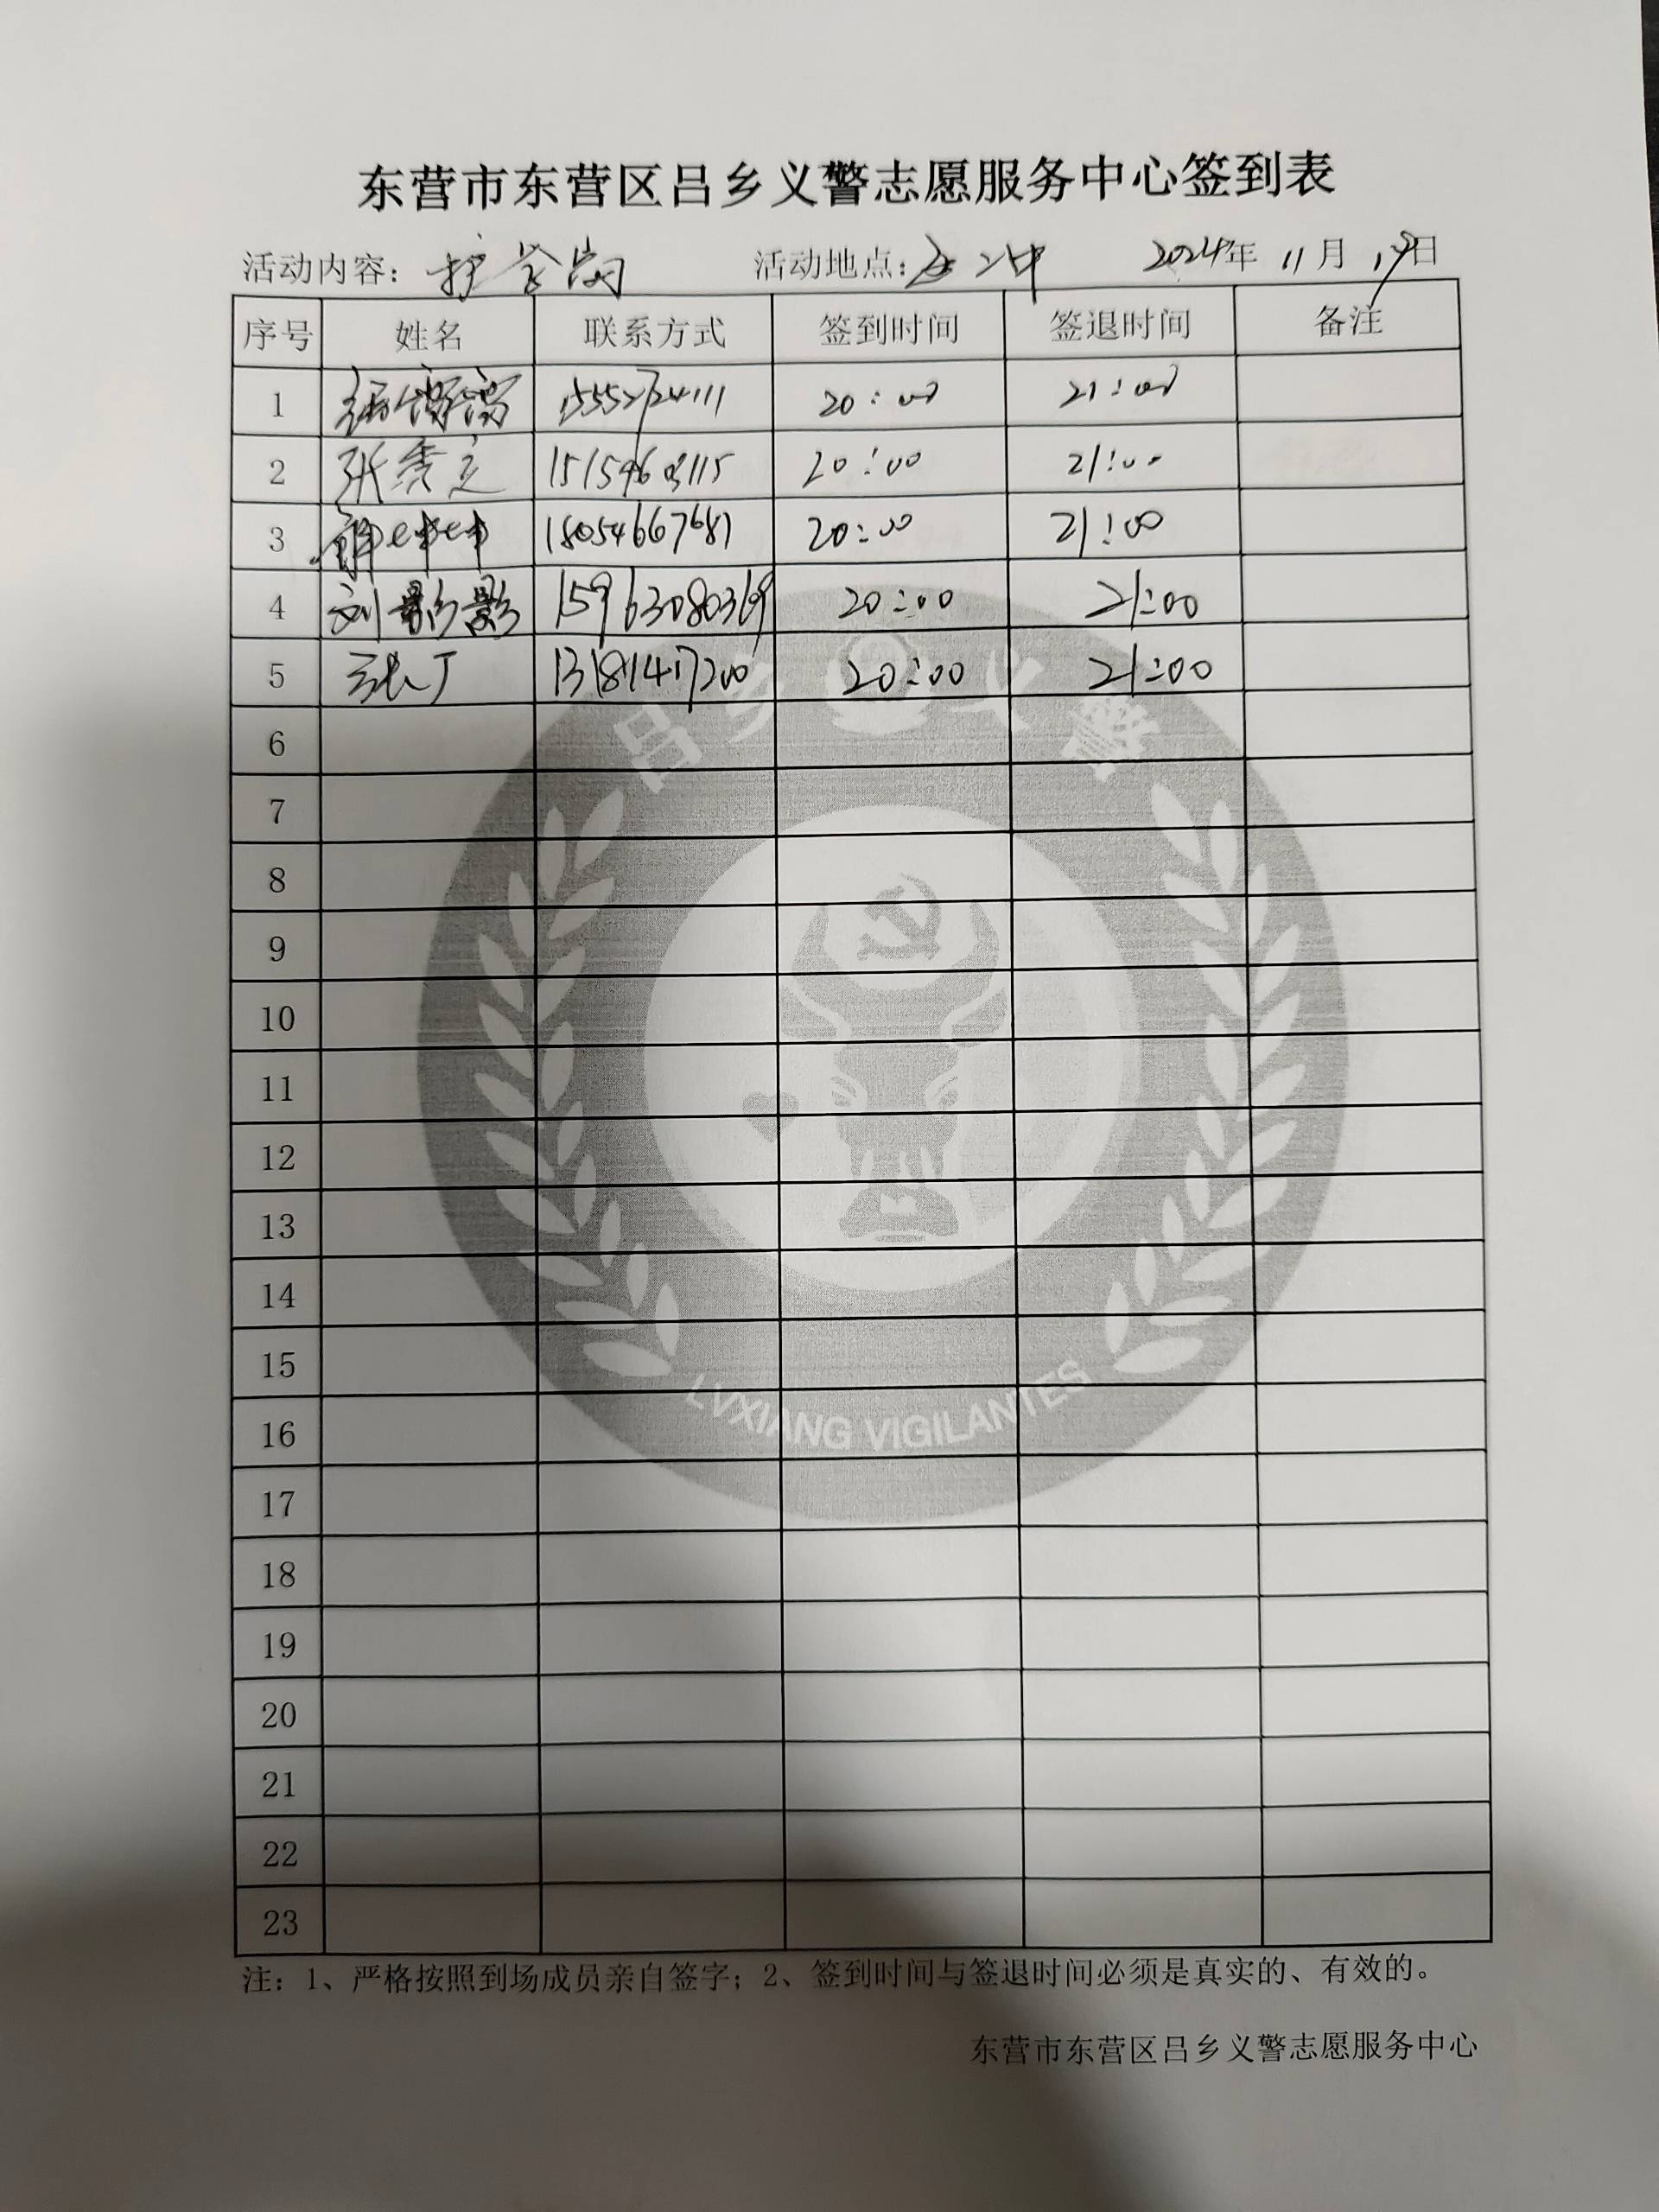 东营市东营区吕乡义警志愿服务中心签到表
活动内容：护学岗 活动地点： 二中 2024年 11月 19日
序号 姓名 联系方式 签到时间 签退时间 备注
1 20:00 21:00
2 张秀立 15159603115 20:00 21:00
3 18054667681 20:00 21:00
4 刘影影 15963080369 20:00 21:00
5 张丁 13181417200 20:00 21:00
6
吕乡义警
7
8
9
10
11
12
13
14
15
LVXIANG VIGILANTES
16
17
18
19
20
21
22
23
注：1、严格按照到场成员亲自签字；2、签到时间与签退时间必须是真实的、有效的。
东营市东营区吕乡义警志愿服务中心